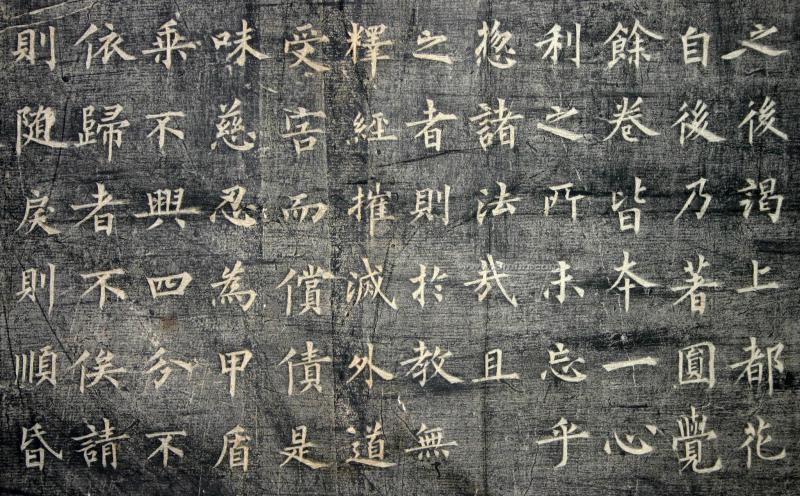 之後謁上都花
自後乃著圓覺
餘卷皆本一心
利之所未忘乎
惣諸法㦲且
之者則於教無
釋經摧滅外道
受害而償債是
味慈忍為甲盾
乘不興四分不
依歸者不俟請
則随戾則順昏